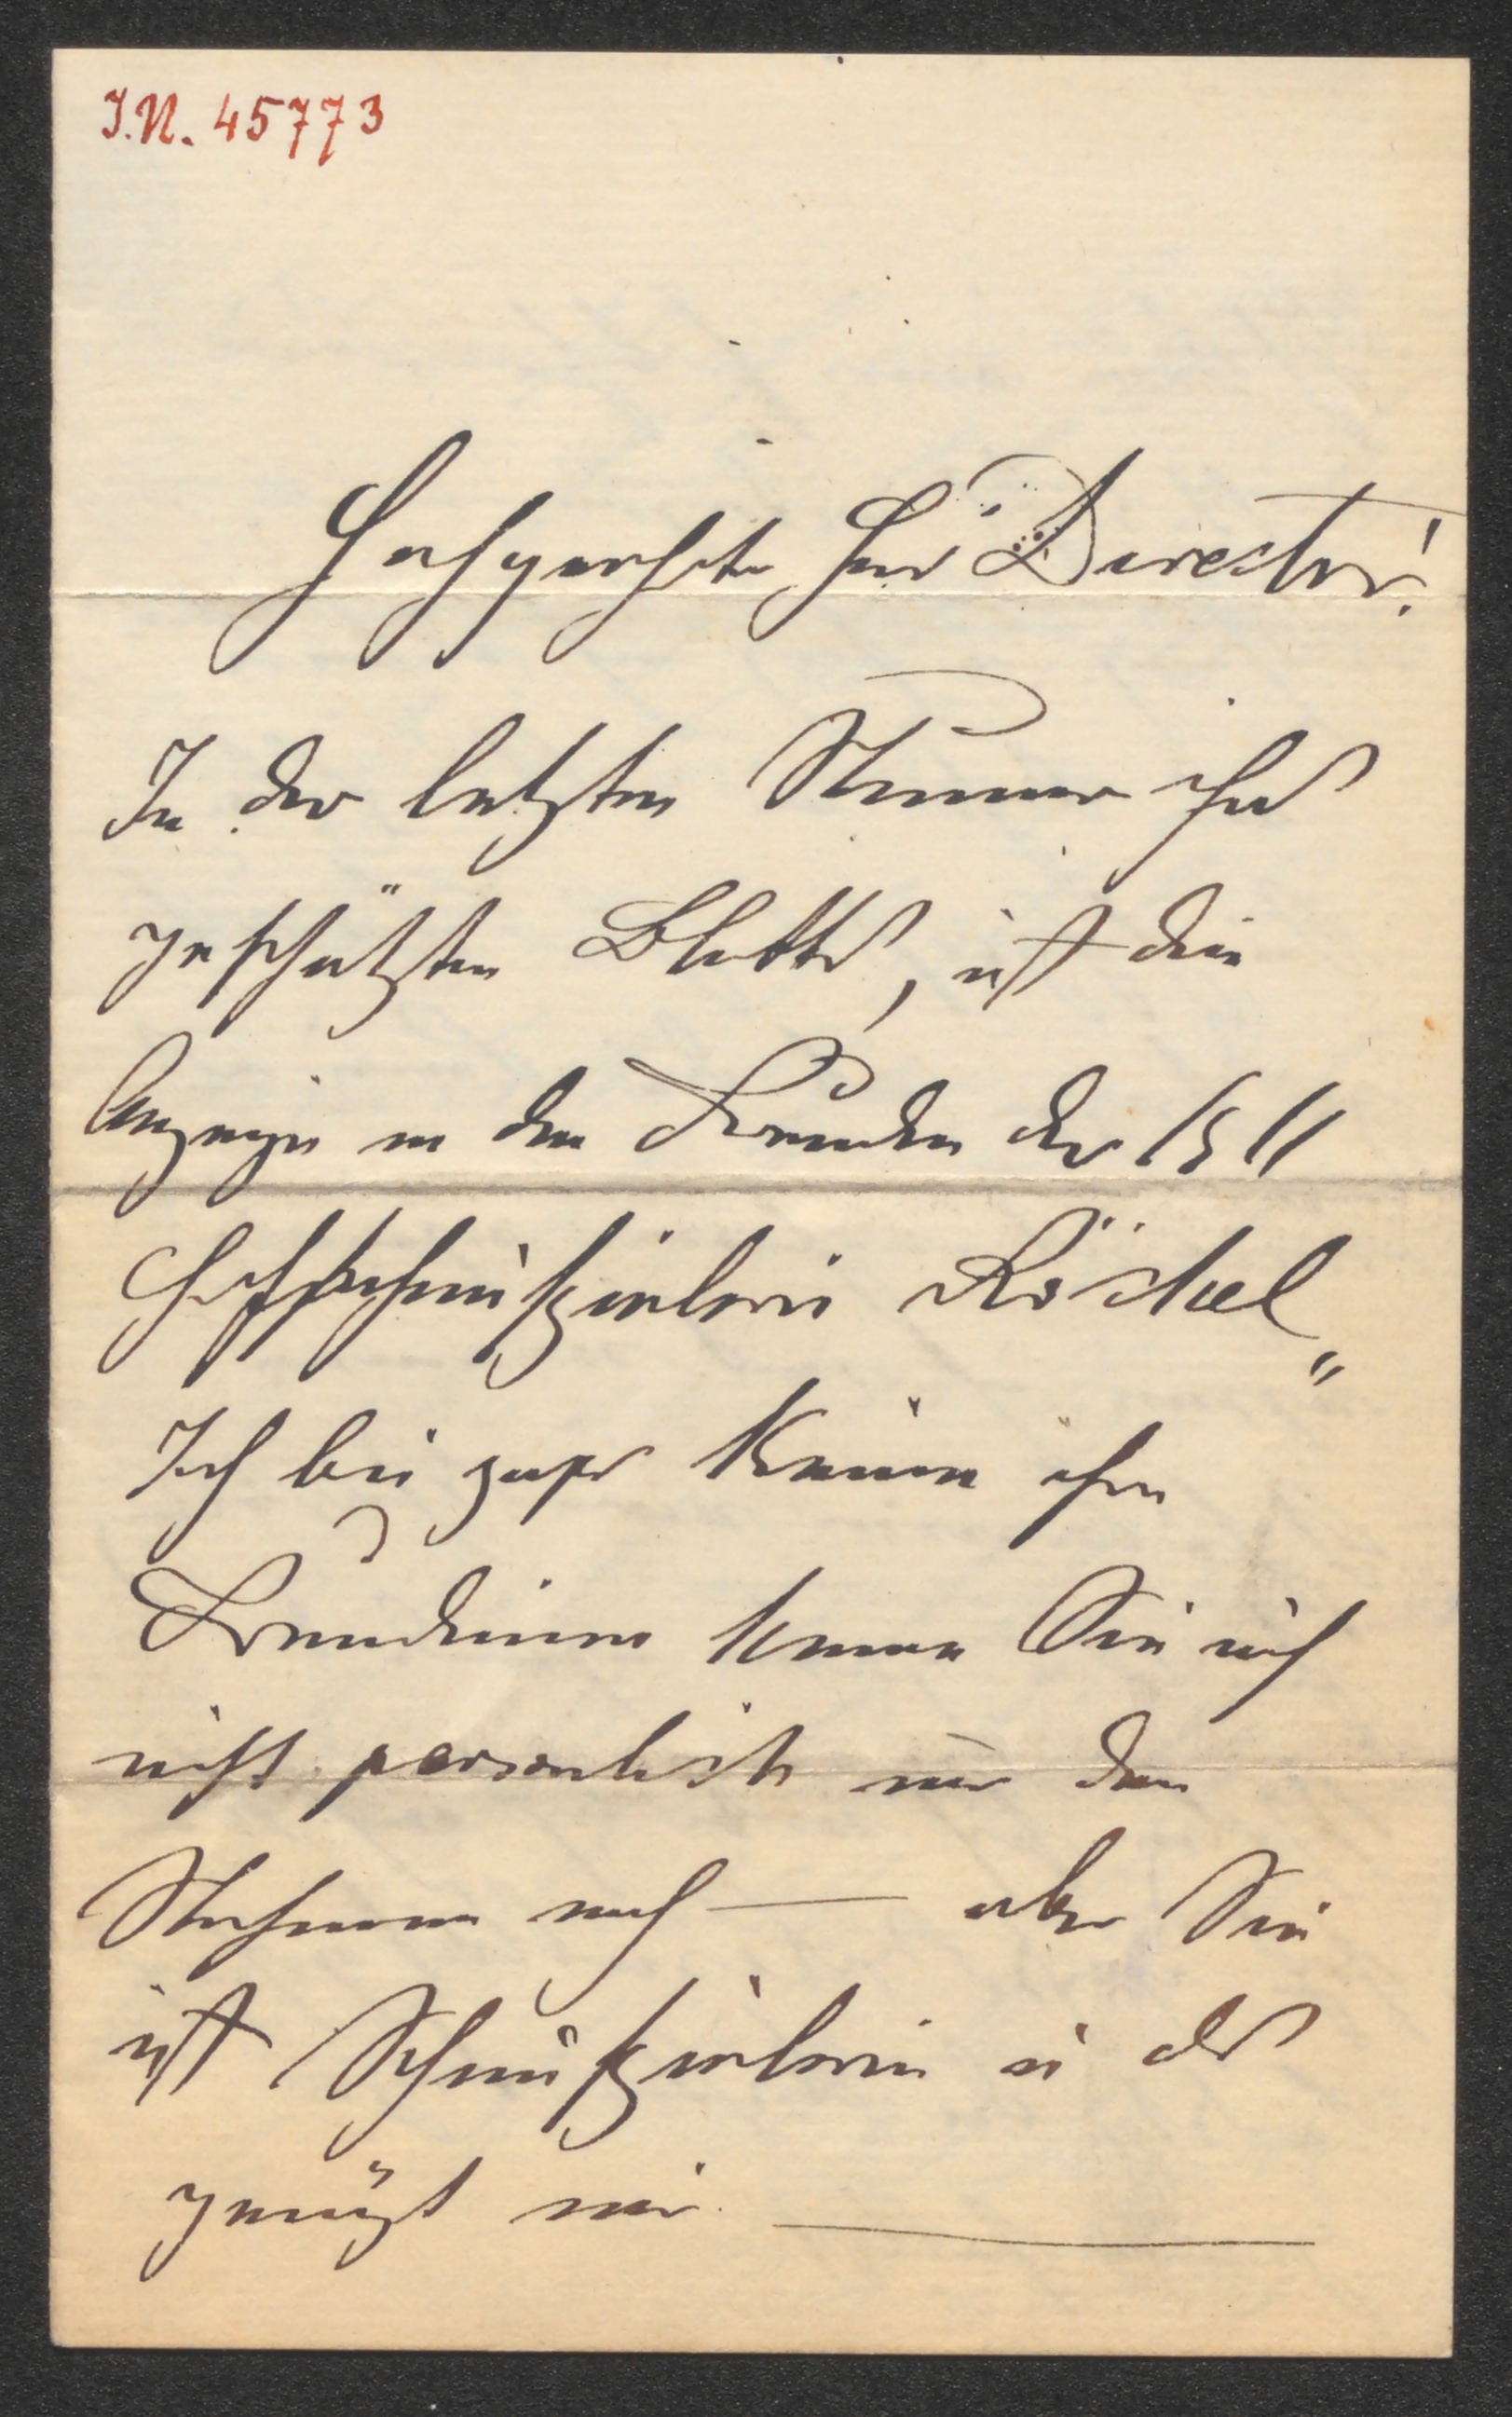 I.N. 45773
Hochgeehrter Herr Director!
In der letzten Nummer ihres
geschätzten Blattes, ist die
Anzeige an den Freunden der k k
Hofschauspielerin Röckel„
Ich bin zwar keine ihrer
Freundinnen kenne Sie auch
nicht persönlich nur dem
Nahmen nach — aber Sie
ist Schauspielerin u das
genügt mir. —